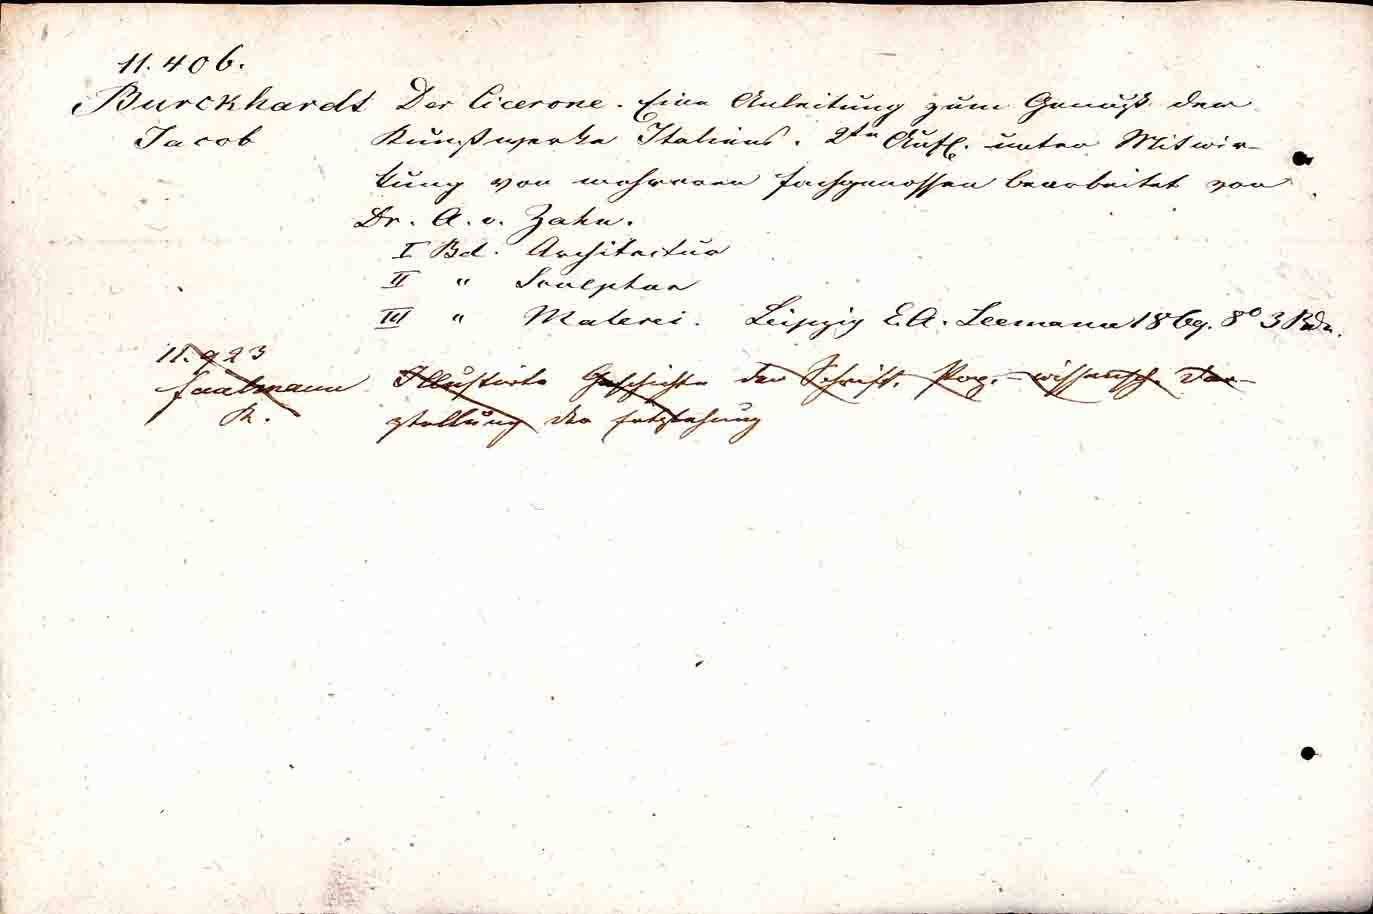 11.406.
Burckhardt Der Cicerone. Eine Anleitung zum Genuß der
Jacob Kunstwerke Italiens. 2te Aufl. unter Mitwir-
kung von mehreren Fachgenossen bearbeitet von
Dr. A. v. Zahn.
I Bd. Architectur
II " Sculptur
III " Malerei. Leipzig E. A. Seemann 1869. 8° 3 Bde.
11.923
Faulmann Illustrirte Geschichte der Schrift. Pop.-wissensch. Dar-
K. stellung der Entstehung